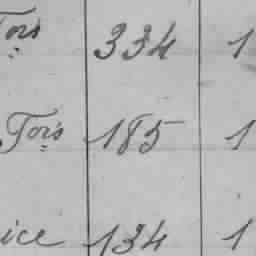 Tors 334 1
Tors 185 1
ice 134 1